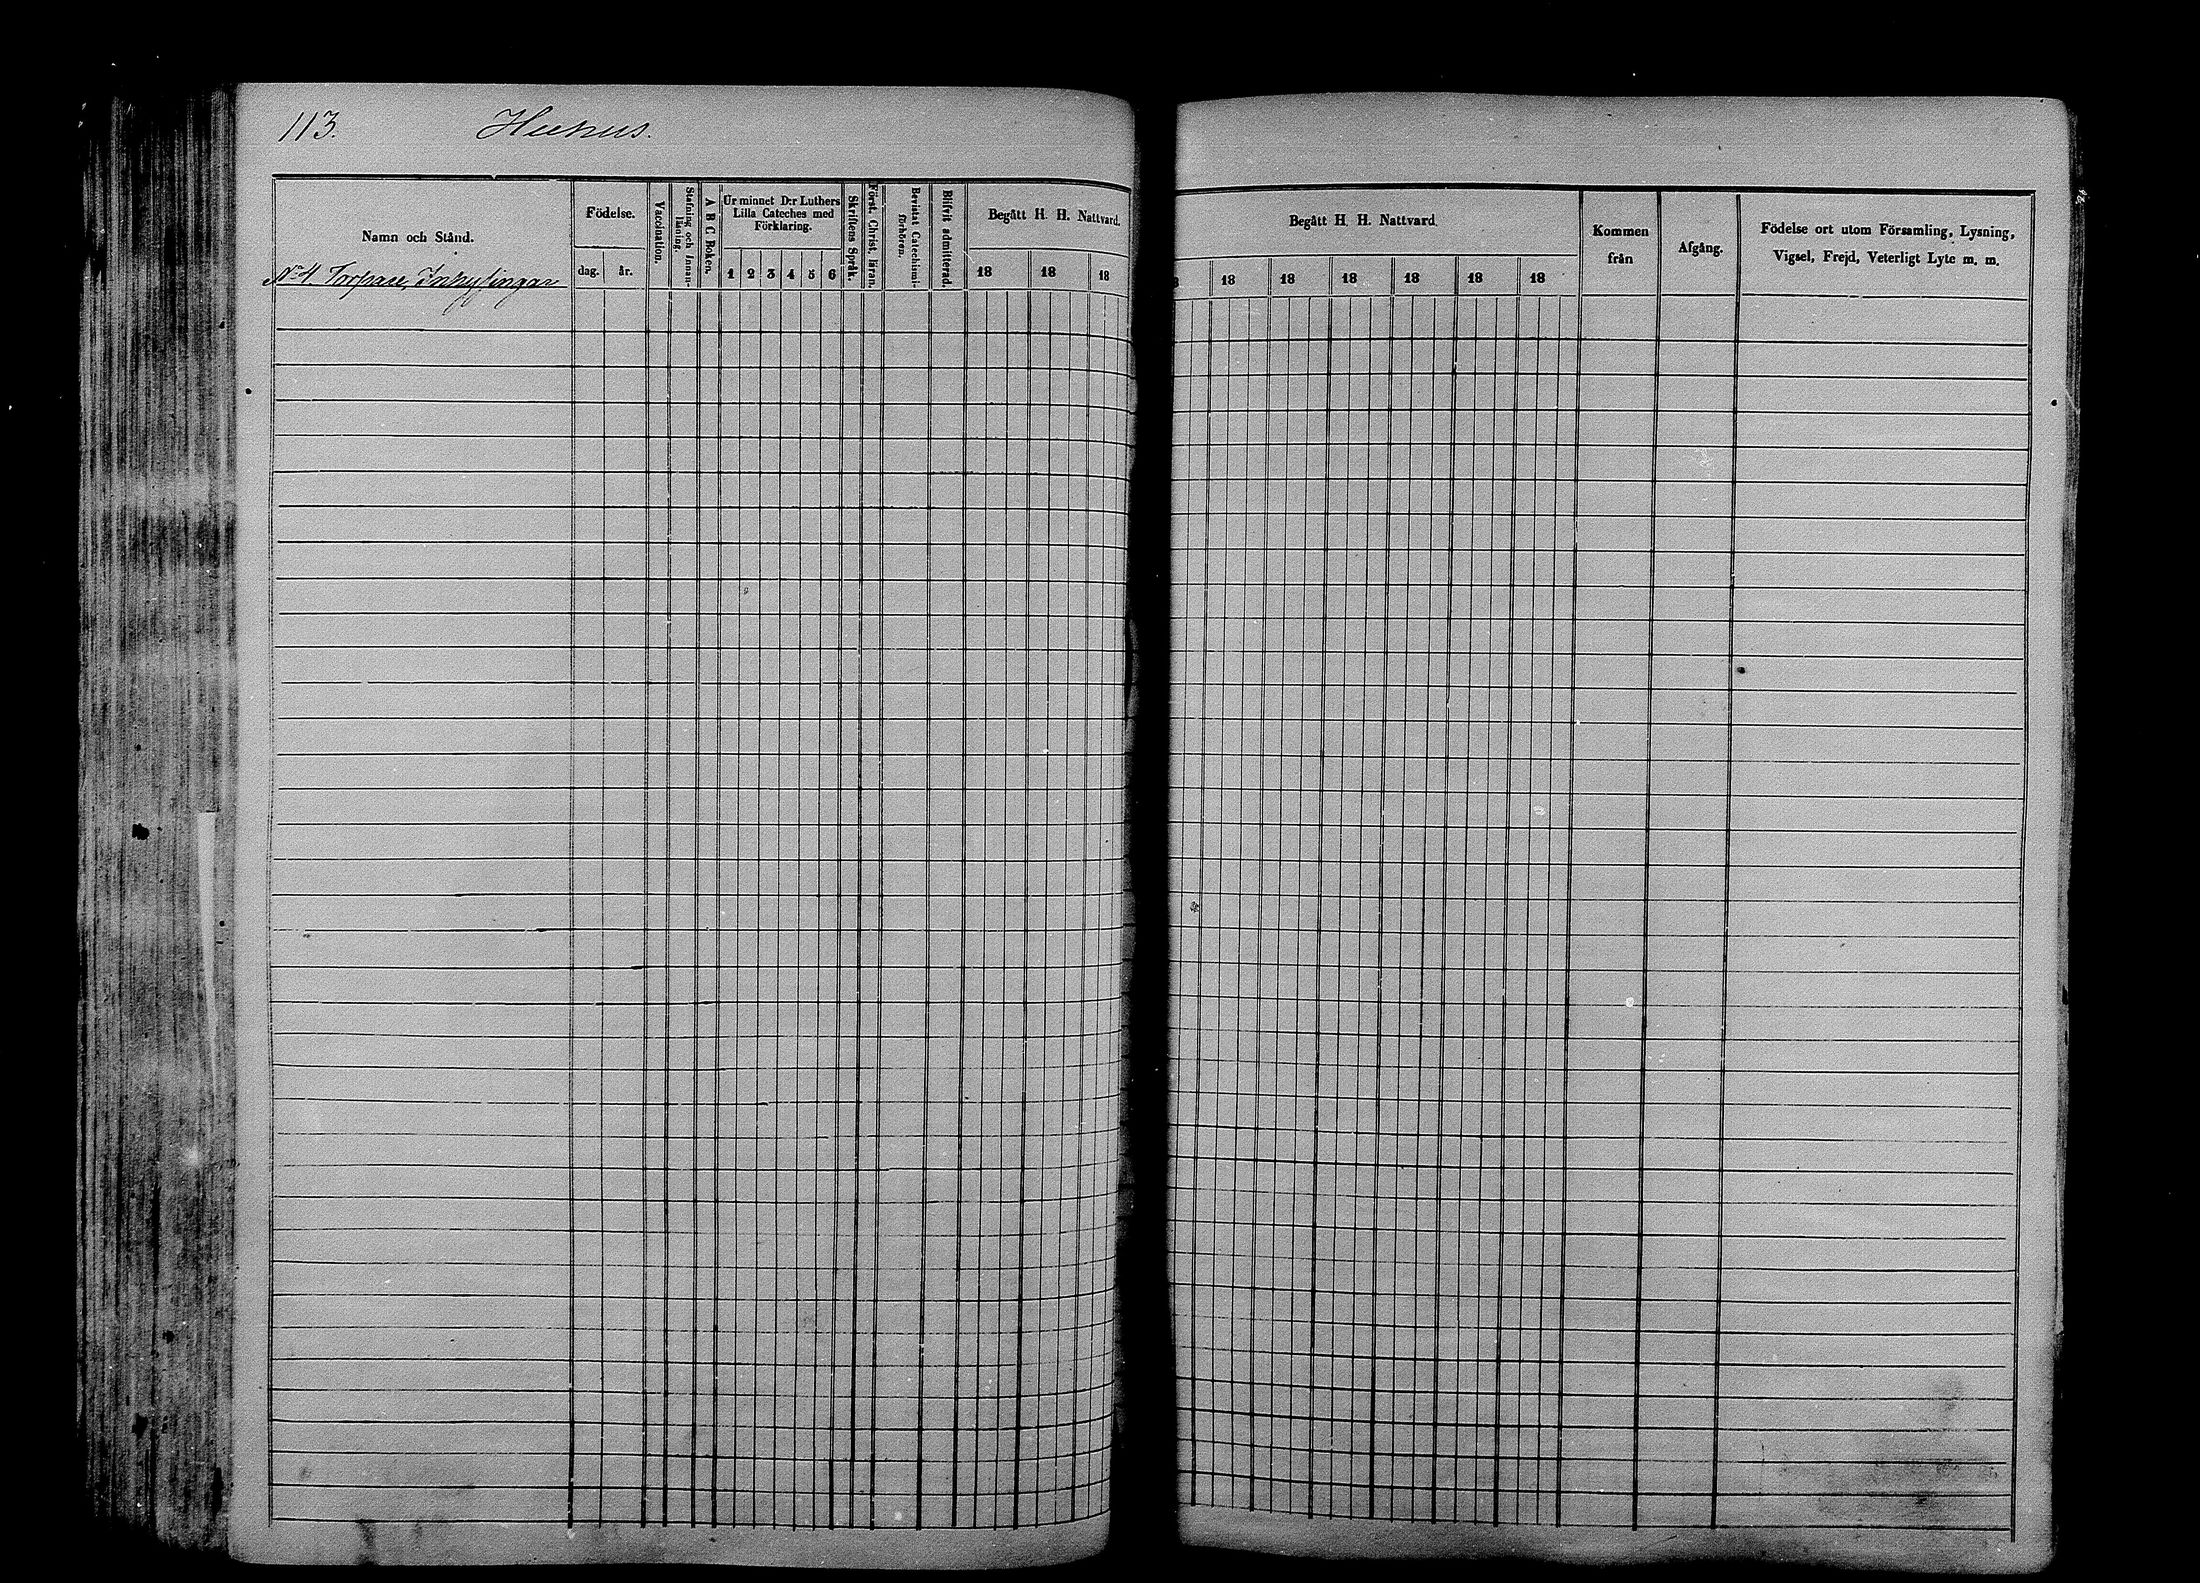 113. Huhus.
Namn och Stånd.
Födelse.
dag. år.
Vaccination.
Stafning och Innan-
läsning.
A B C Boken.
Ur minnet D:r Luthers
Lilla Cateches med
Förklaring.
1 2 3 4 5 6
Skriftens Språk.
Först. Christ. läran.
Bevistat Catechismi-
förhören.
Blifvit admitterad.
Begått H. H. Nattvard.
18 18 18
No 4. Torpare, Inhysingar
Begått H. H. Nattvard.
18 18 18 18 18 18
Kommen
från
Afgång.
Födelse ort utom Församling, Lysning,
Vigsel, Frejd, Veterligt Lyte m. m.